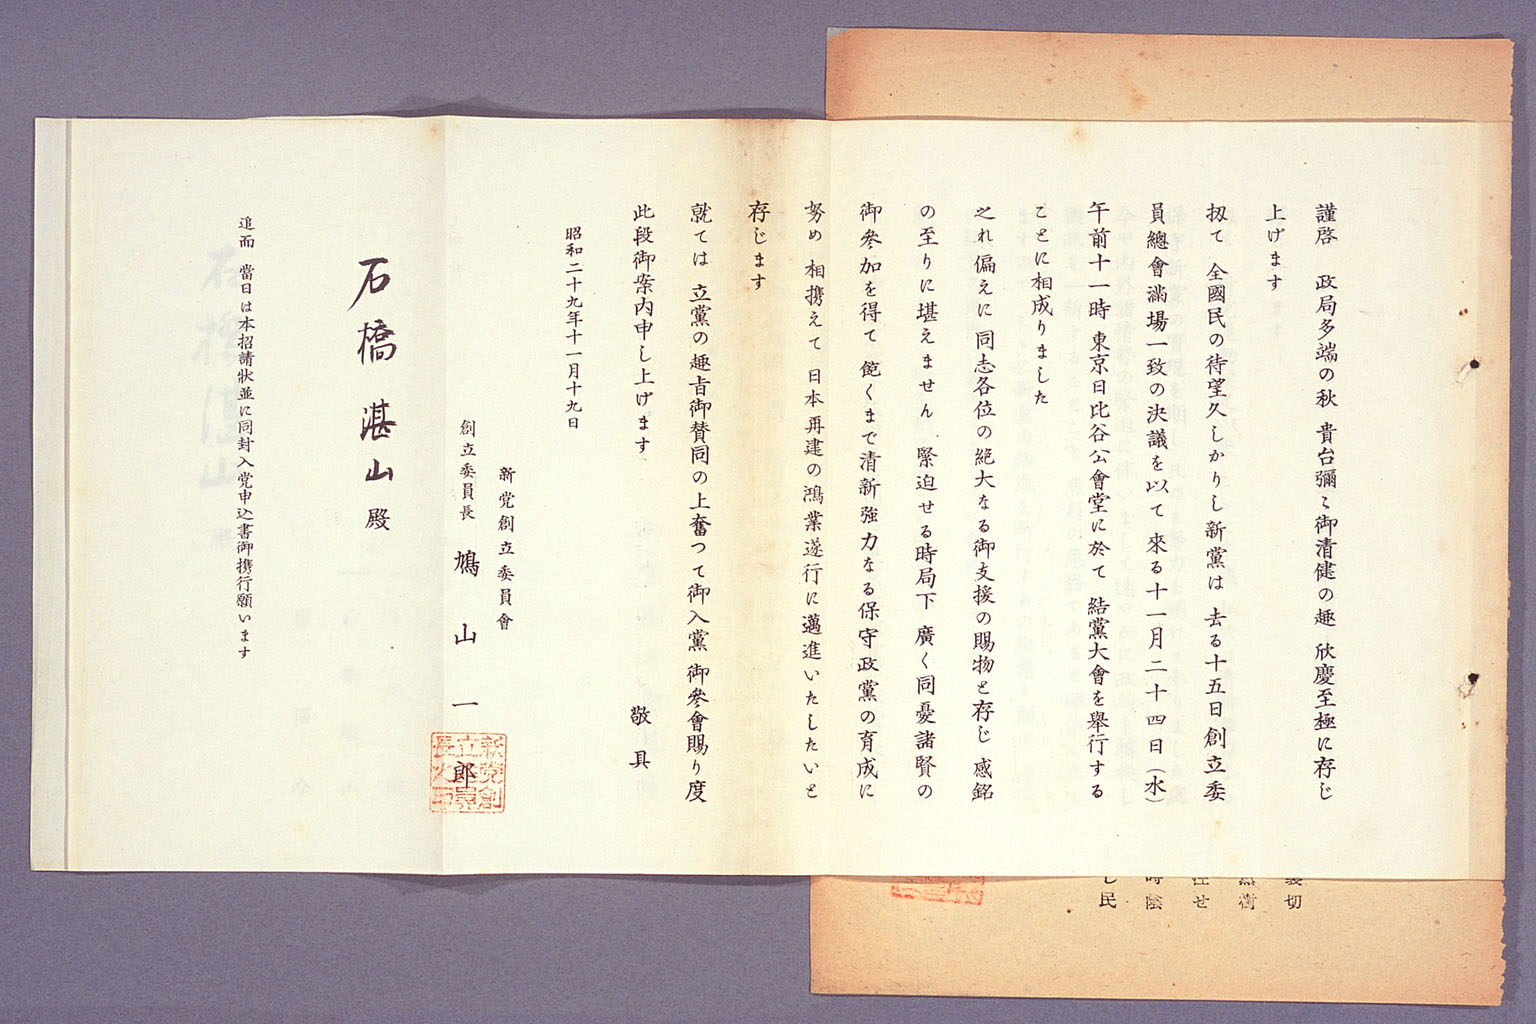 謹啓　政局多端の秋 貴台彌々御清健の趣 欣慶至極に存じ
上げます
扨て 全國民の待望久しかりし新黨は 去る十五日創立委
員總會滿場一致の決議を以て 來る十一月二十四日(水)
午前十一時 東京日比谷公會堂に於て 結黨大會を舉行する
ことに相成りました
之れ偏えに 同志各位の絶大なる御支援の賜物と存じ 感銘
の至りに堪えません 緊迫せる時局下 廣く同憂諸賢の
御參加を得て 飽くまで清新強力なる保守政黨の育成に
努め 相携えて 日本再建の鴻業遂行に邁進いたしたいと
存じます
就ては 立黨の趣旨御賛同の上奮つて御入黨 御參會賜り度
此段御案内申し上げます　敬具
昭和二十九年十一月十九日
新党創立委員會
創立委員長　鳩山一郎
石橋湛山殿
追而 當日は本招請狀並に同封入党申込書御携行願います
裏切
時陰
し民